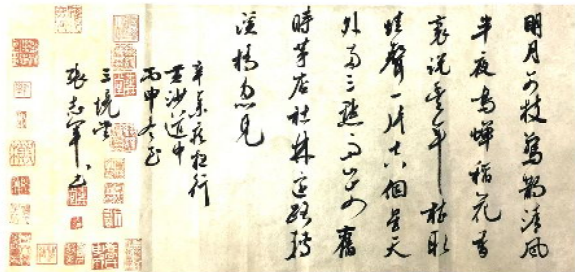 明月別枝驚鵲清風
半夜鳴蟬稻花香
裏说豐年聽取
蛙聲一片七八個星天
外兩三點雨山前舊
時茅店社林邊路轉
溪橋忽見
辛棄疾夜行
黄沙道中
丙申
三境堂
張志軍書